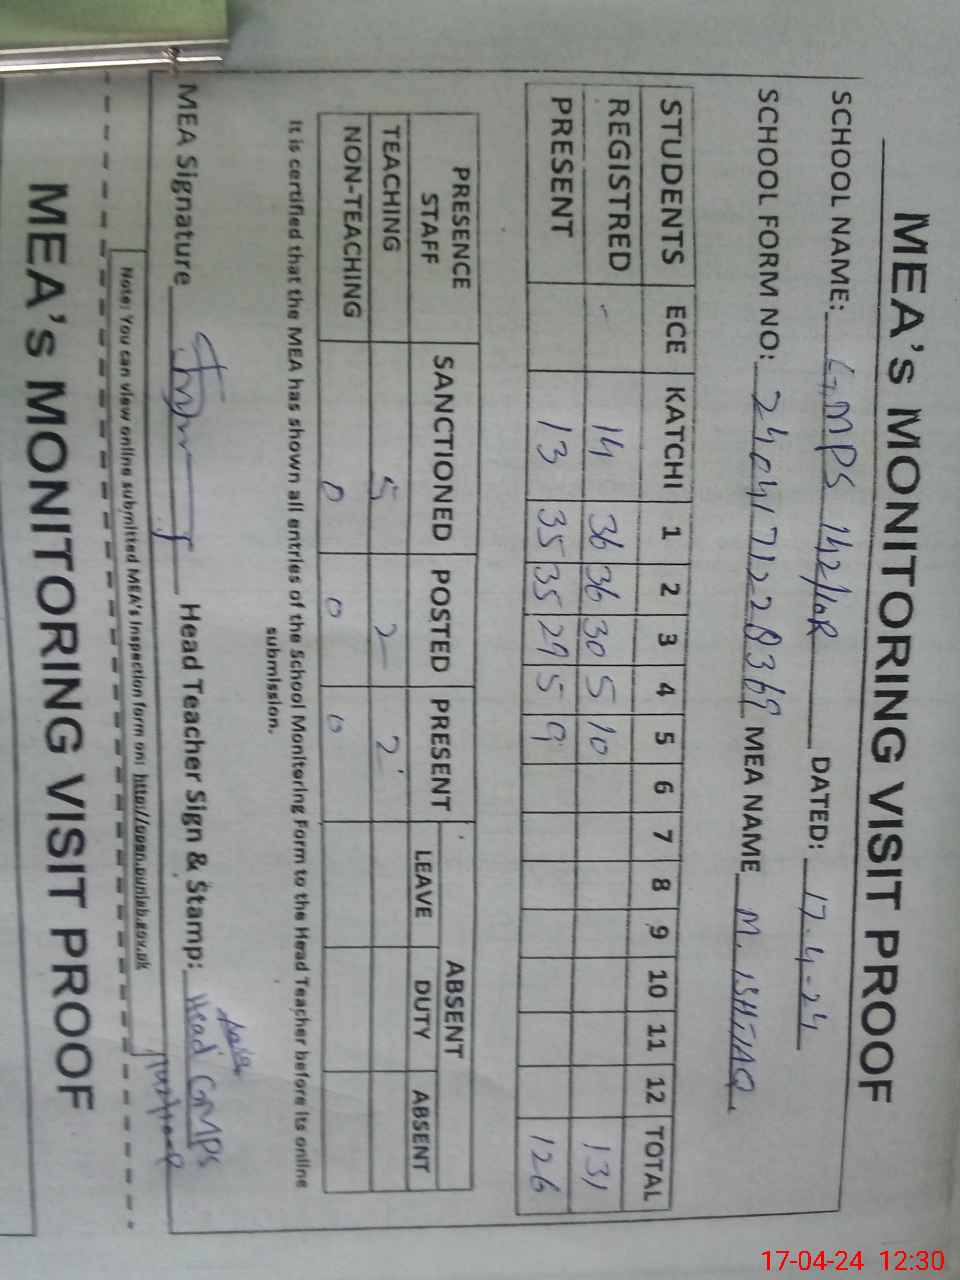 MEA's MONITORING VISIT PROOF
SCHOOL NAME: GMPS 142/10R DATED: 17-4-24
SCHOOL FORM NO: MEA NAME M. ISHTIAQ
STUDENTS ECE KATCHI 1 2 3 4 5 6 7 8 9 10 11 12 TOTAL
REGISTRED - 14 36 36 30 5 10 131
PRESENT 13 35 35 29 5 9 126
PRESENCE STAFF SANCTIONED POSTED PRESENT ABSENT
LEAVE DUTY ABSENT
TEACHING 5 2 2
NON-TEACHING 0 0 0
It is certified that the MEA has shown all entries of the School Monitoring Form to the Head Teacher before its online
submission.
MEA Signature Head Teacher Sign & Stamp: Head GMPS
Note: You can view online submitted MEA's Inspection form on: http://open.punjab.gov.pk
MEA's MONITORING VISIT PROOF
17-04-24 12:30